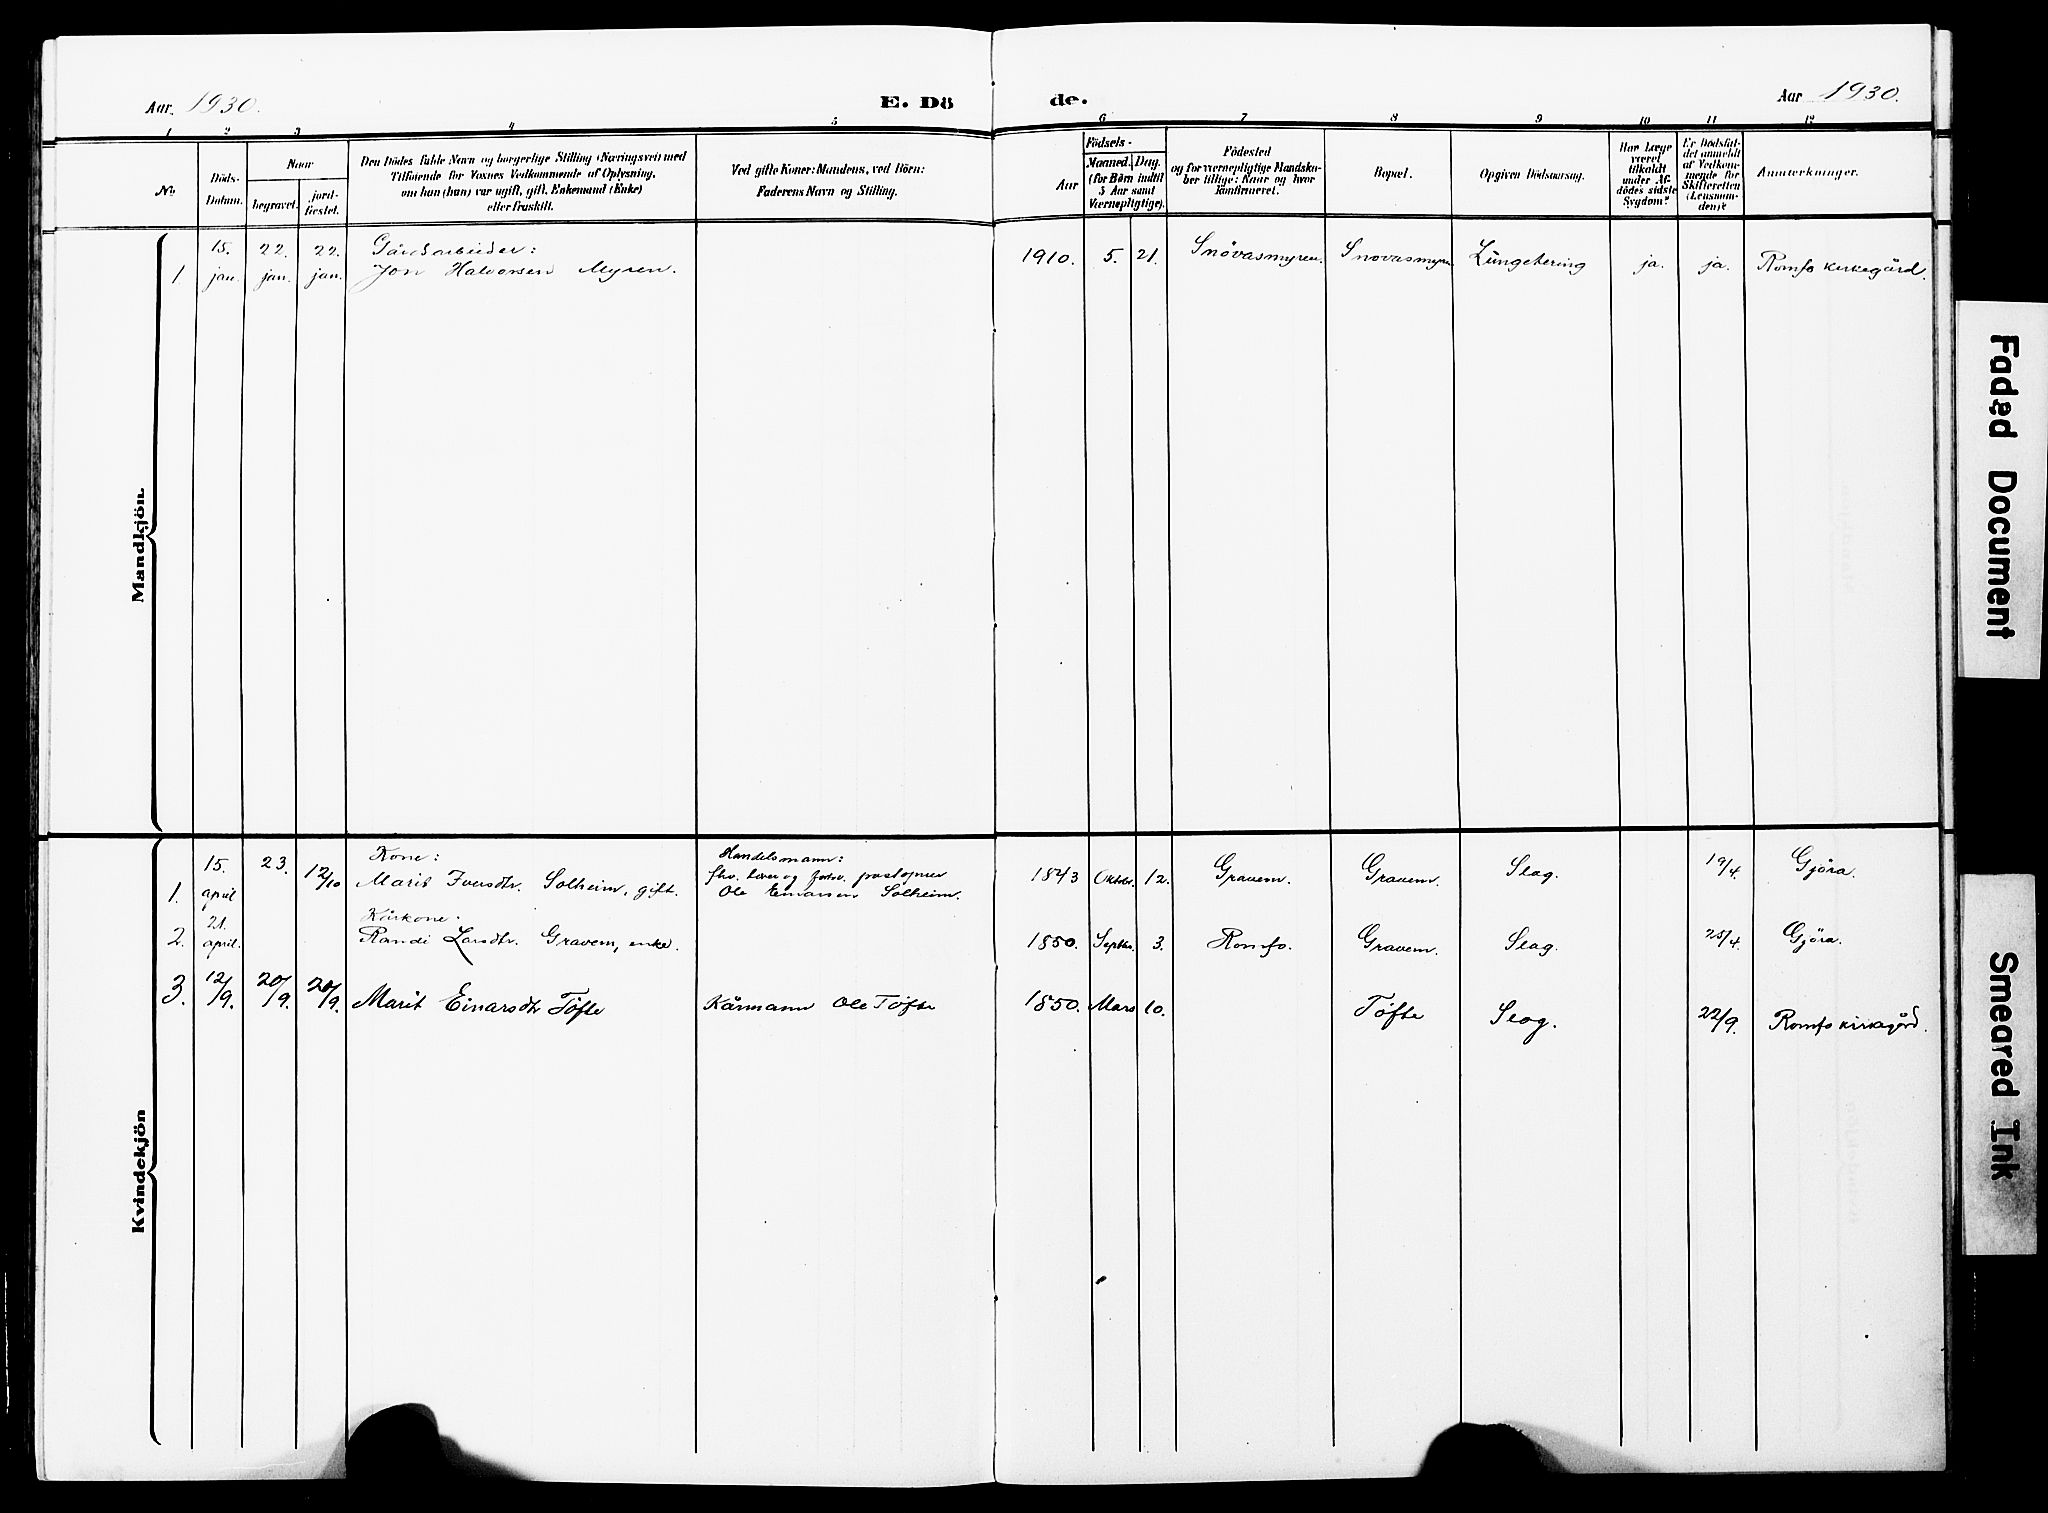 Aar. 1930.
E. Dö
de.
Aar 1930.
1 2 3 4 5
6 7 8 9 10 11 12
No.
Döds-
Datum.
Naar
begravet.
jord-
fæstet.
Den Dödes fulde Navn og borgerlige Stilling (Næringsvei) med
Tilföiende for Voxnes Vedkommende af Oplysning,
om han (hun) var ugift, gift, Enkemand (Enke)
eller fraskilt.
Ved gifte Koner: Mandens, ved Börn:
Faderens Navn og Stilling.
Födsels-
Aar
Maaned. Dag.
(for Börn indtil
5 Aar samt
Værnepligtige).
Födested
og for værnepligtige Mandska-
ber tillige: Naar og hvor
konfirmeret.
Bopæl.
Opgiven Dödsaarsag.
Har Læge
været
tilkaldt
under Af-
dödes sidste
Sygdom?
Er Dödsfal-
det anmeldt
af Vedkom-
mende for
Skifteretten
(Lensman-
den)?
Anmærkninger.
Mandkjön.
1. 15. jan. 22. jan. 22. jan. Gårdsarbeider:
Jon Halvorsen Myren. 1910. 5. 21. Snövasmyren. Snovasmyren. Lungetering ja. ja. Romfo kirkegård.
Kvindekjön
1. 15. april 23. 12/10 Kone:
Marit Iversdtr. Solheim, gift. Handelsmann:
fhv. lærer og postopner
Ole Einarsen Solheim. 1843 Oktbr. 12. Gravem. Gravem. Slag. 19/4. Gjöra.
2. 21. april. Kårkone.
Randi Larsdtr. Gravem, enke. 1850. Septbr. 3. Romfo. Gravem. Slag. 25/4. Gjöra.
3. 12/9. 20/9. 20/9. Marit Einarsdtr Tøfte Kårmann Ole Tøfte 1850. Mars 10. Tøfte Slag. 22/9. Romfo kirkegård.
Faded Document
Smeared Ink